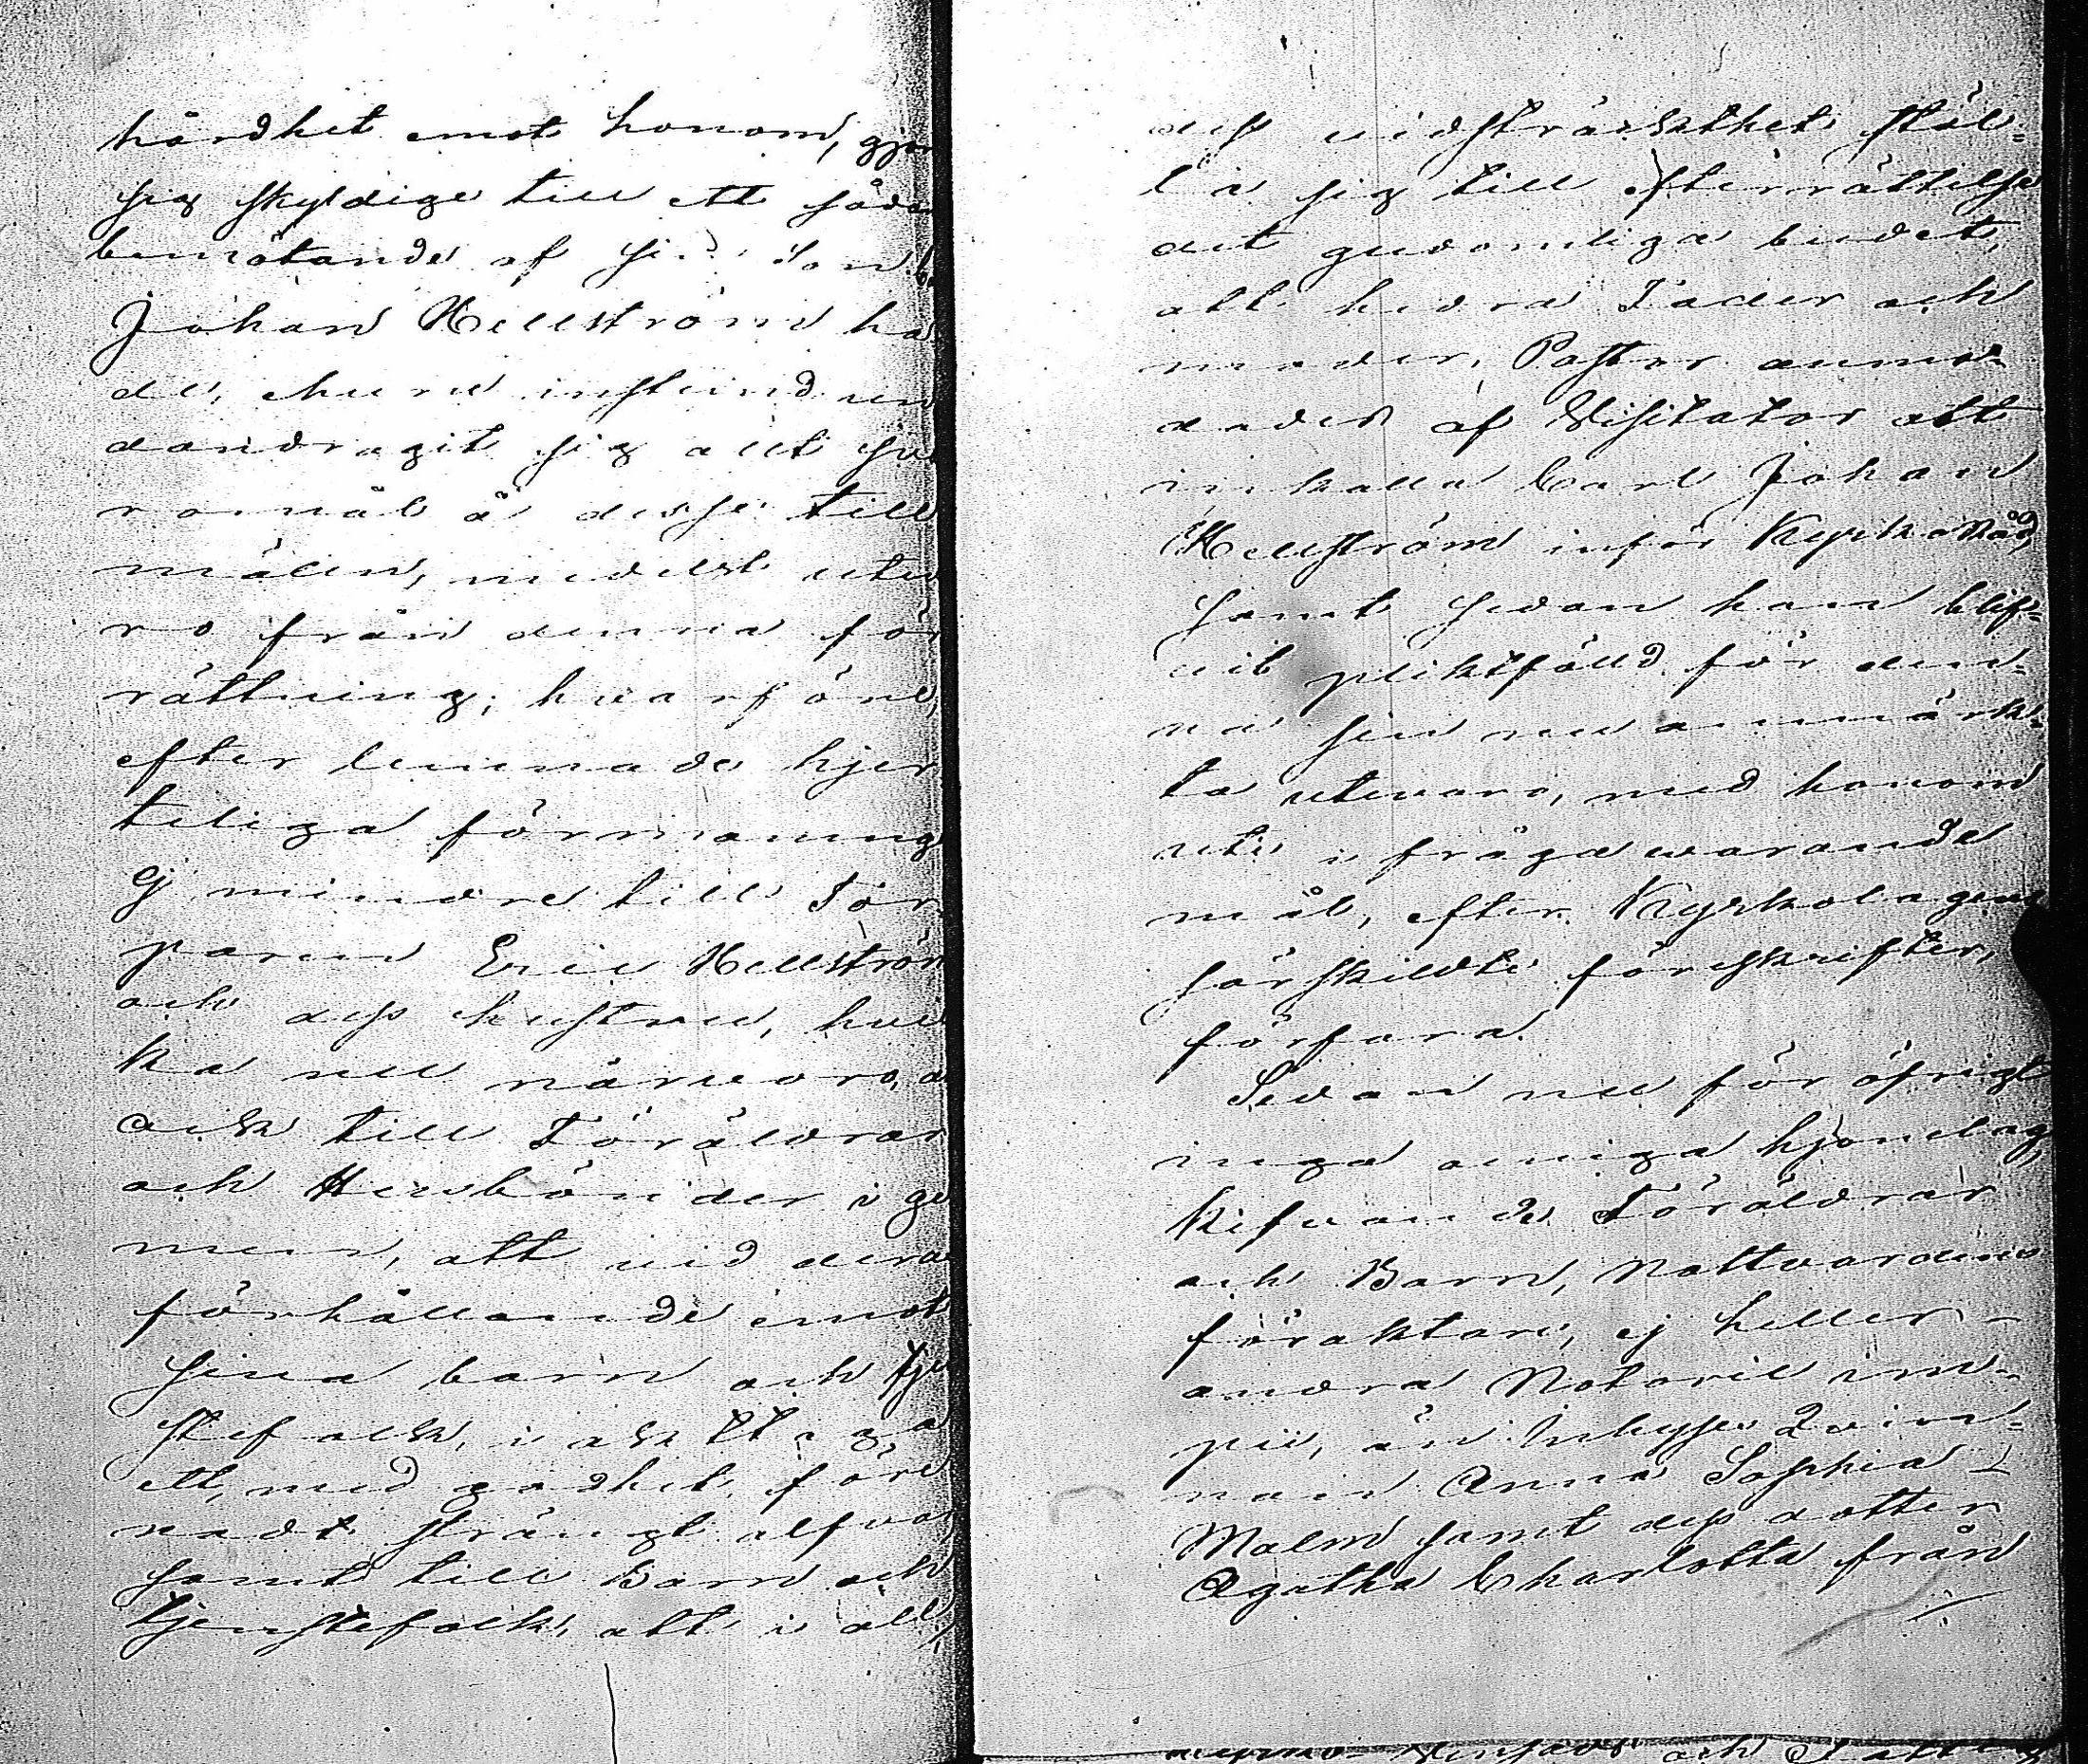 hårdhet emot honom, gjor
sig skyldige till ett såda
bemötande af sin Son
Johan Hellström ha
de, ehuru instämd un
dandragit sig allt sva
romål å desse till
målen, medelst utev
ro från denna för
rättning; hvarföre,
efter lemnade hjer
teliga förmaning
Ej mindre till Tor
paren Eric Hellström
och dess hustru, hvil
ka nu närvoro, än
ock till Föräldrar
och Husbönder i ge
men, att vid dera
förhållande emot
sina barn och tjen
stefolk, iakttaga
ett, med godhet, före
nadt strängt alfvar
samt till Barn och
tjenstefolk, att i all
dess vidsträckthet stäl=
la sig till efterrättelse
det gudomliga budet,
att hedra Fader och
moder. Pastor anmo=
dades af Visitator att
inkalla Carl Johan
Hellström inför Kyrkoråd,
samt sedan han blif=
vit pliktfälld för den=
na sin nu anmärk=
ta utevaro, med honom
uti i fråga warande
mål, efter Kyrkolagens
särskildte föreskrifter,
förfara.
Sedan nu för öfrigt
inga oeniga hjonelag,
kifvande Föräldrar
och Barn, Nattvardens
föraktare, ej heller
andra Notorie im=
pii, än Inhyses Qvin=
nan Anna Sophia
Malm samt dess dotter
Agatha Charlotta från